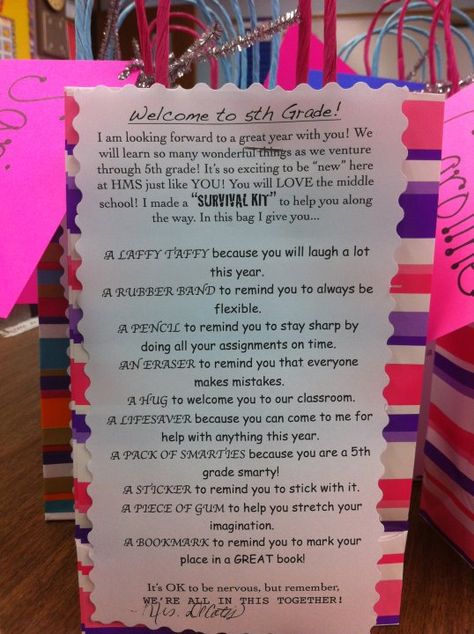 Welcome to 5th Grade!
I am looking forward to a great year with you! We
will learn so many wonderful things as we venture
through 5th grade! It's so exciting to be "new" here
at HMS just like YOU! You will LOVE the middle
school! I made a "SURVIVAL KIT" to help you along
the way. In this bag I give you...
A LAFFY TAFFY because you will laugh a lot
this year.
A RUBBER BAND to remind you to always be
flexible.
A PENCIL to remind you to stay sharp by
doing all your assignments on time.
AN ERASER to remind you that everyone
makes mistakes.
A HUG to welcome you to our classroom.
A LIFESAVER because you can come to me for
help with anything this year.
A PACK OF SMARTIES because you are a 5th
grade smarty!
A STICKER to remind you to stick with it.
A PIECE OF GUM to help you stretch your
imagination.
A BOOKMARK to remind you to mark your
place in a GREAT book!
It's OK to be nervous, but remember,
WE'RE ALL IN THIS TOGETHER!
Mrs.